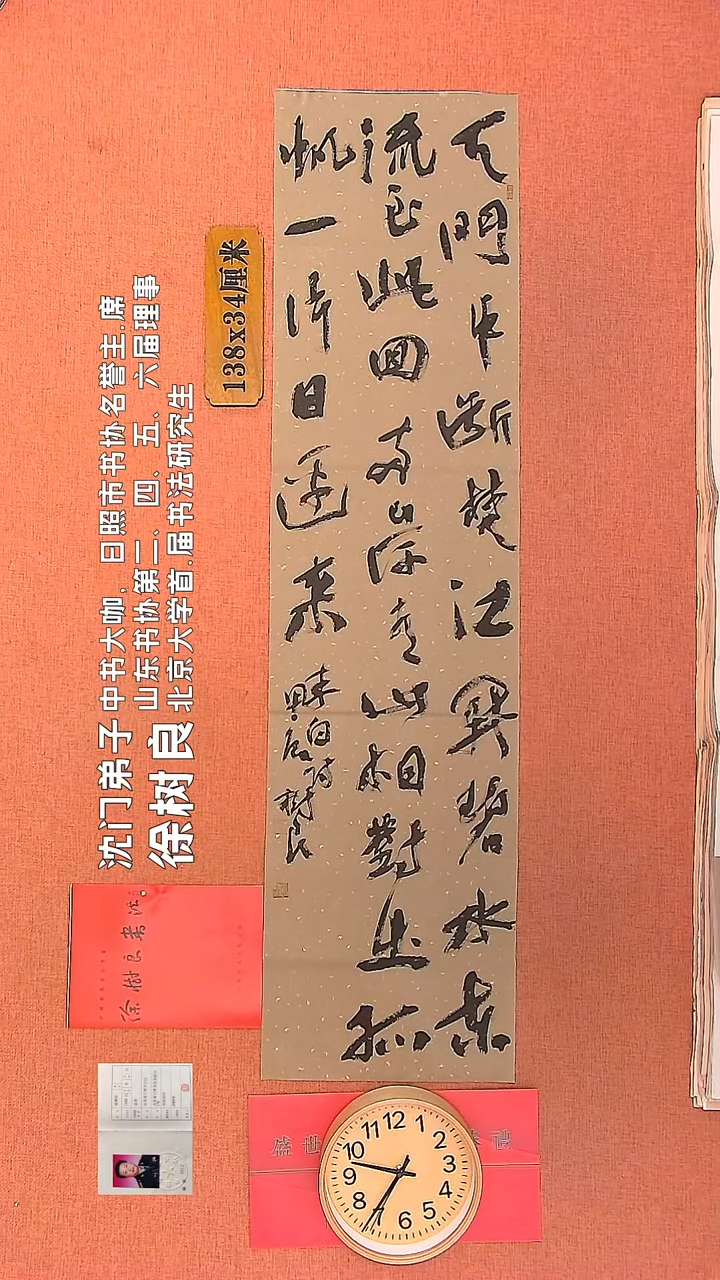 天門中斷楚江開碧水東
流至此回兩岸青山相對出孤
帆一片日邊來
李白詩
樹良
138x34厘米
沈门弟子 中书大咖，日照市书协名誉主.席
山东书协第二、四、五、六届理事
徐树良 北京大学首.届书法研究生
徐樹良書法
盛世 禮
12
1
2
3
4
5
6
7
8
9
10
11